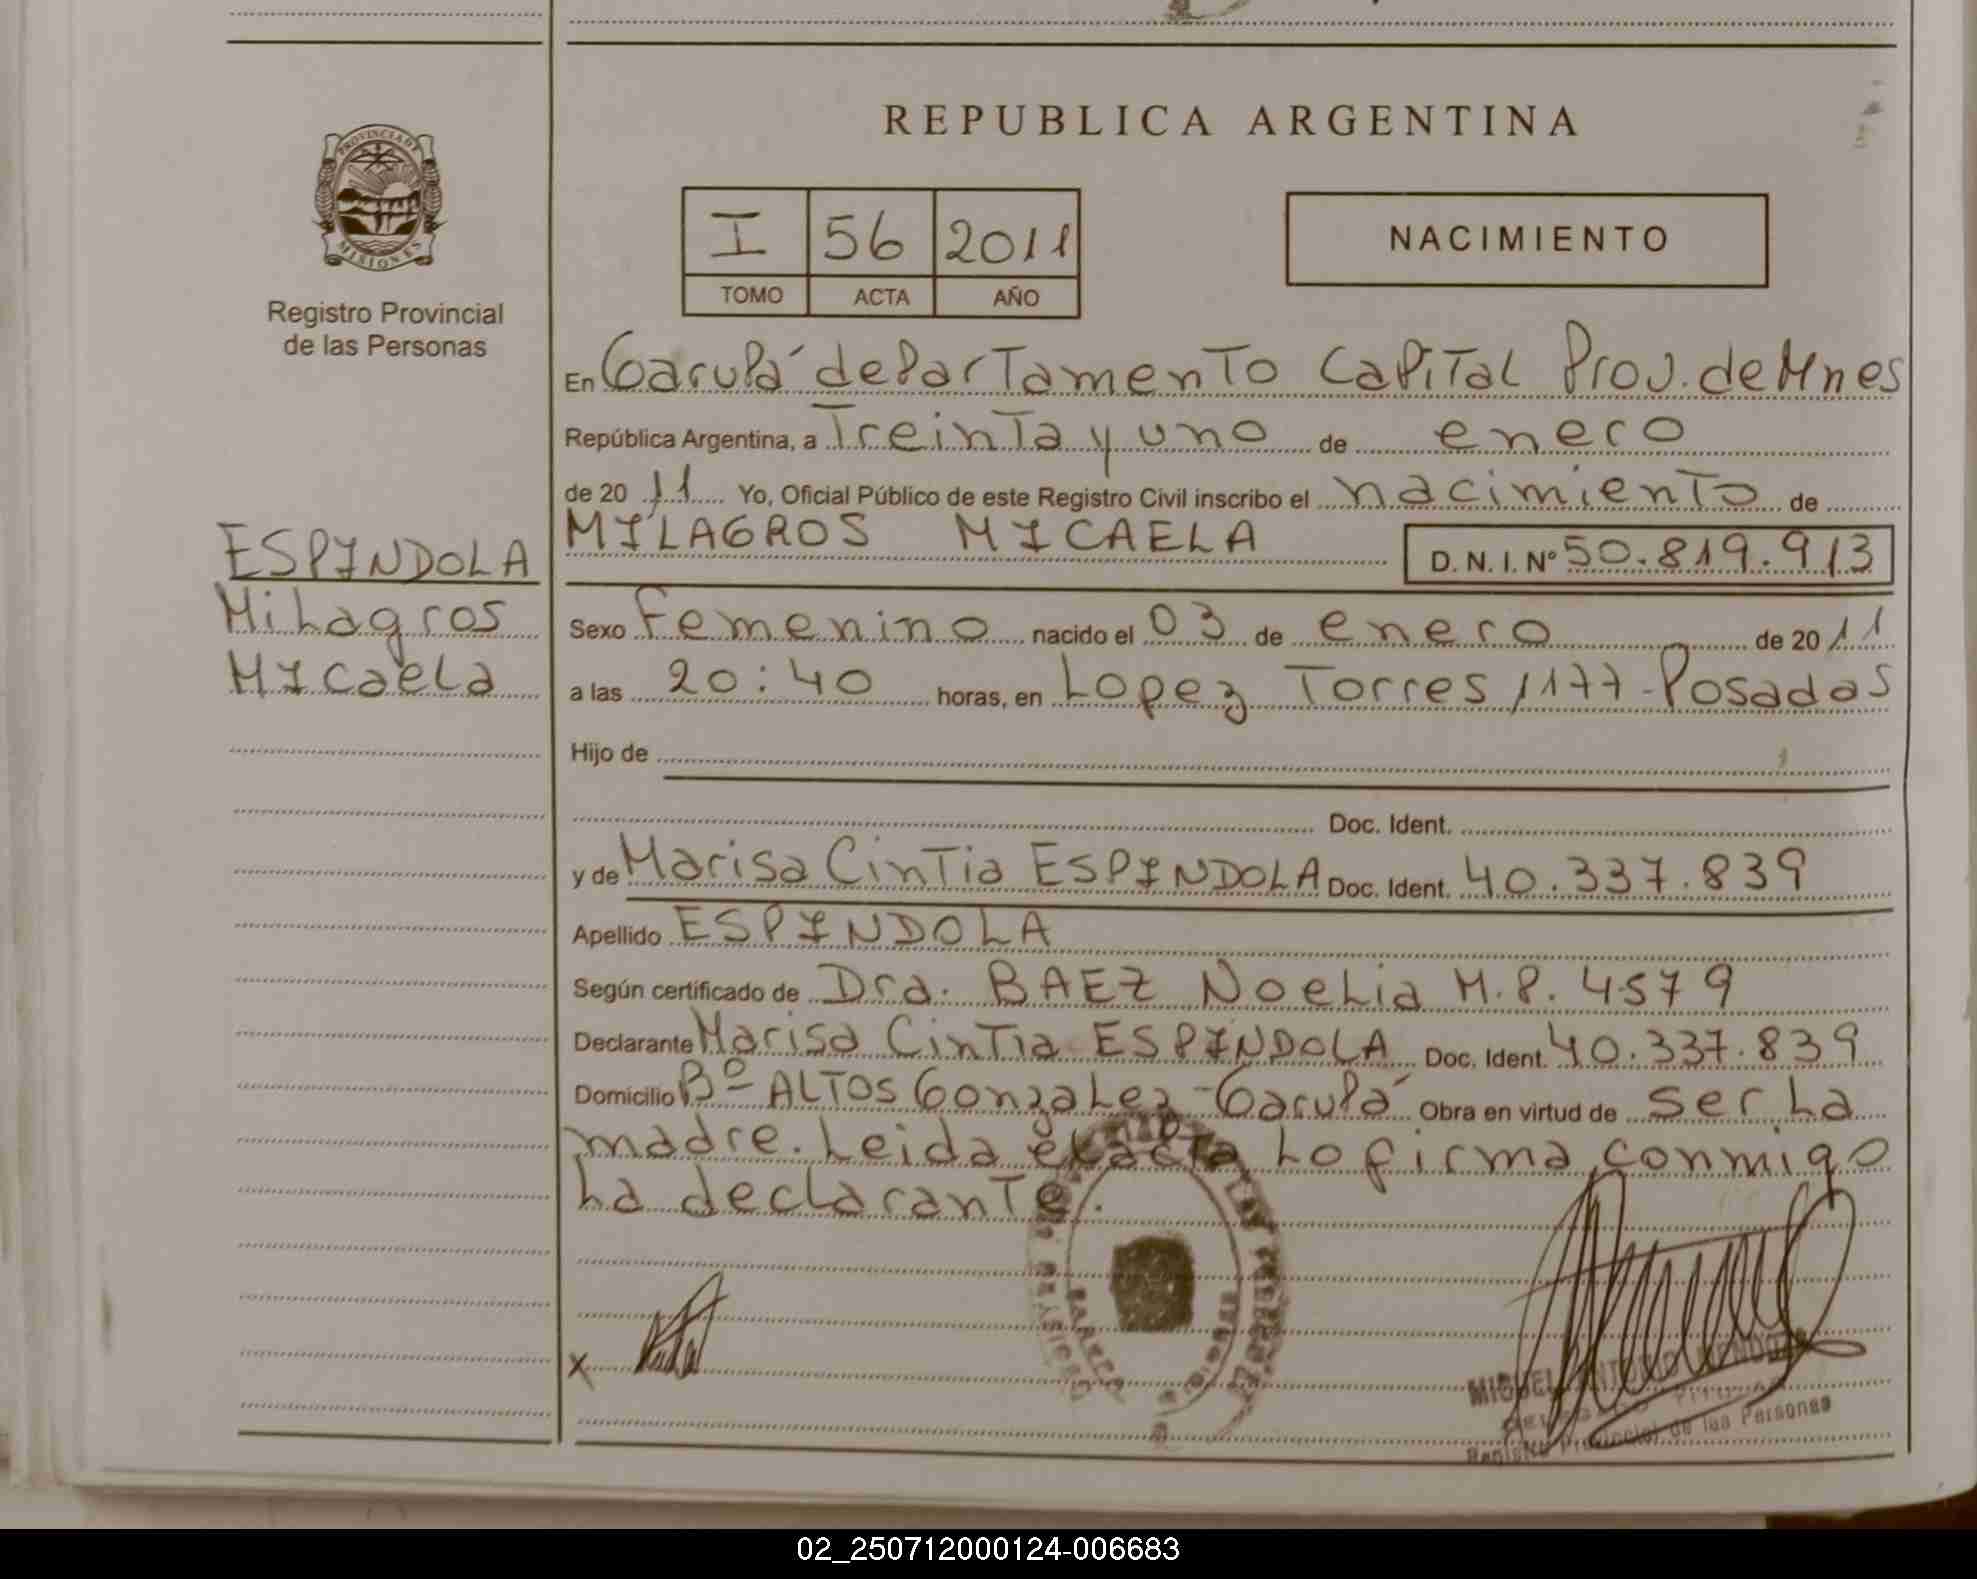 PROVINCIA DE
MISIONES
Registro Provincial
de las Personas
ESPINDOLA
Milagros
Micaela
REPUBLICA ARGENTINA
I 56 2011
TOMO ACTA AÑO
NACIMIENTO
En Garupá departamento Capital Prov. de Mnes
República Argentina, a Treinta y uno de enero
de 2011 Yo, Oficial Público de este Registro Civil inscribo el nacimiento de
MILAGROS MICAELA D. N. I. Nº 50.819.913
Sexo Femenino nacido el 03 de enero de 2011
a las 20:40 horas, en Lopez Torres 1177-Posadas
Hijo de
Doc. Ident.
y de Marisa Cintia ESPINDOLA Doc. Ident. 40.337.839
Apellido ESPINDOLA
Según certificado de Dra. BAEZ Noelia M.P. 4579
Declarante Marisa Cintia ESPINDOLA Doc. Ident. 40.337.839
Domicilio Bº ALTOS Gonzalez-Garupá Obra en virtud de ser la
madre. Leida el acta lo firma conmigo
la declarante.
X
MIGUEL ANTONIO MENDOZA
Registro Provincial de las Personas
02_250712000124-006683